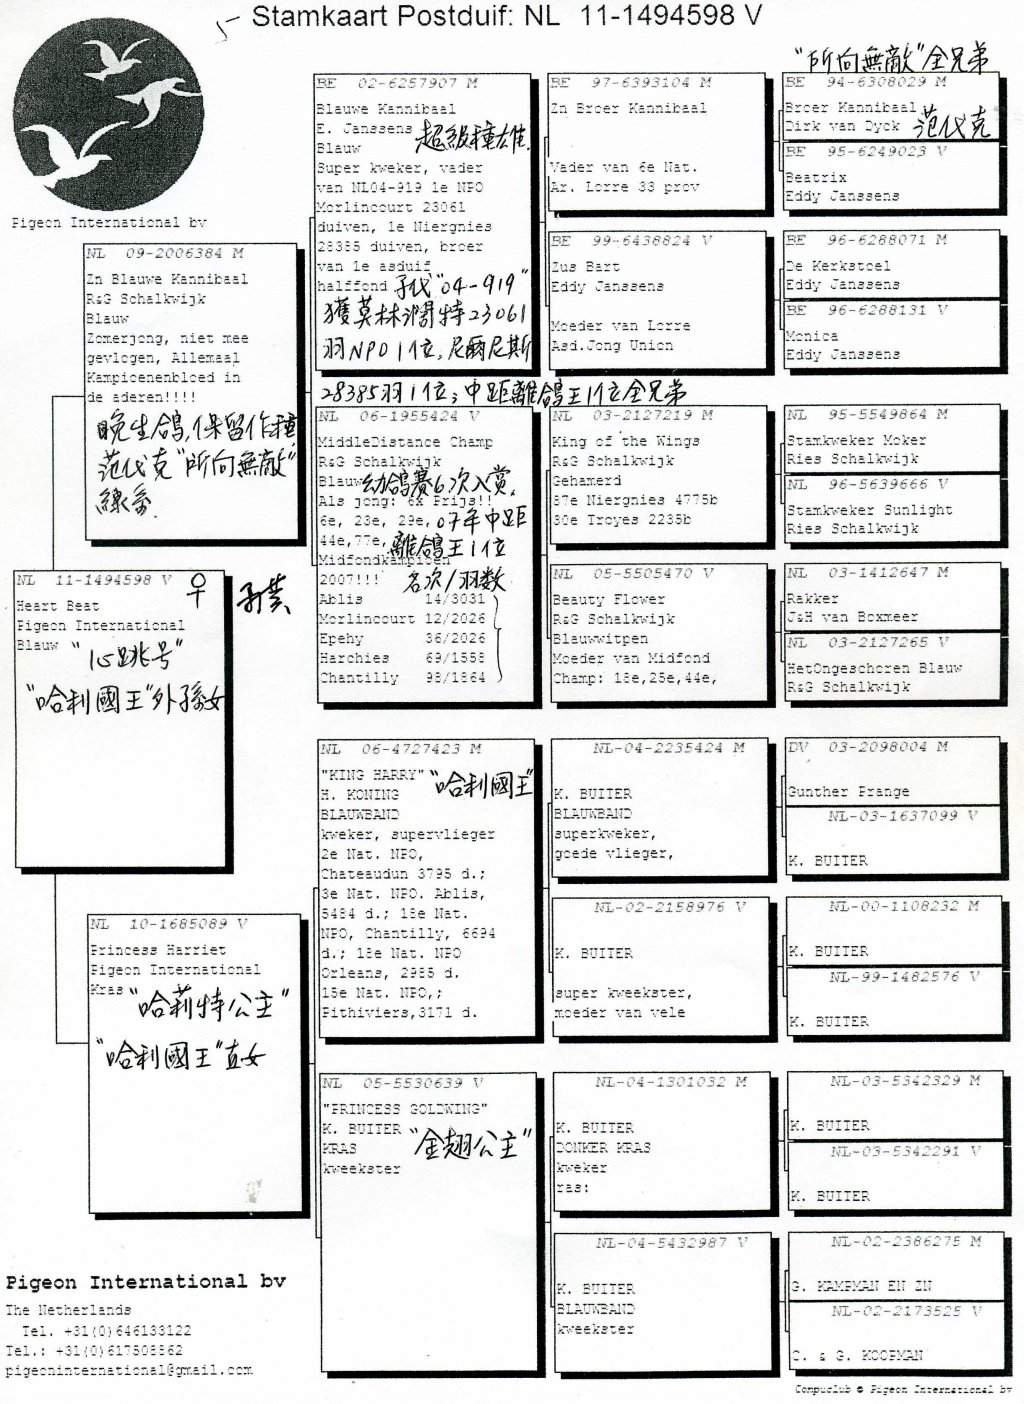 Stamkaart Postduif: NL 11-1494598 V
Pigeon International bv
NL 11-1494598 V ♀
Heart Beat
Pigeon International
Blauw
"心跳号"
"哈利國王"外孫女
NL 09-2006384 M
Zn Blauwe Kannibaal
R&G Schalkwijk
Blauw
Zomerjong, niet mee
gevlogen, Allemaal
Kampioenenbloed in
de aderen!!!!
晚生鴿,保留作種
范代克"所向無敵"
線系.
NL 10-1685089 V
Princess Harriet
Pigeon International
Kras
"哈莉特公主"
"哈利國王"直女
BE 02-6257907 M
Blauwe Kannibaal
E. Janssens
Blauw
超級種雄.
Super kweker, vader
van NL04-919 1e NPO
Morlincourt 23061
duiven, 1e Niergnies
28385 duiven, broer
van 1e asduif
halffond
子代"04-919"
獲莫林潤特23061
羽NPO1位,尼爾尼斯
28385羽1位;中距離鴿王1位全兄弟
NL 06-1955424 V
MiddleDistance Champ
R&G Schalkwijk
Blauw
幼鴿賽6次入赏.
Als jong: 6x Prijs!!
6e, 23e, 29e,
44e,77e,
07年中距
離鴿王1位
Midfondkampioen
2007!!!
名次/羽数
Ablis 14/3031
Morlincourt 12/2026
Epehy 36/2026
Harchies 69/1558
Chantilly 98/1864
NL 06-4727423 M
"KING HARRY"
"哈利國王"
H. KONING
BLAUWBAND
kweker, supervlieger
2e Nat. NPO,
Chateaudun 3795 d.;
3e Nat. NPO. Ablis,
5484 d.; 18e Nat.
NPO, Chantilly, 6694
d.; 18e Nat. NPO
Orleans, 2985 d.
15e Nat. NPO,;
Pithiviers,3171 d.
NL 05-5530639 V
"PRINCESS GOLDWING"
K. BUITER
KRAS
kweekster
"金翅公主"
BE 97-6393104 M
Zn Broer Kannibaal
Vader van 6e Nat.
Ar. Lorre 33 prov
BE 99-6438824 V
Zus Bart
Eddy Janssens
Moeder van Lorre
Asd.Jong Union
NL 03-2127219 M
King of the Wings
R&G Schalkwijk
Gehamerd
37e Niergnies 4775b
30e Troyes 2235b
NL 05-5505470 V
Beauty Flower
R&G Schalkwijk
Blauwwitpen
Moeder van Midfond
Champ: 18e,25e,44e,
NL-04-2235424 M
K. BUITER
BLAUWBAND
superkweker,
goede vlieger,
NL-02-2158976 V
K. BUITER
super kweekster,
moeder van vele
NL-04-1301032 M
K. BUITER
DONKER KRAS
kweker
ras:
NL-04-5432987 V
K. BUITER
BLAUWBAND
kweekster
"所向無敵"全兄弟
BE 94-6308029 M
Broer Kannibaal
Dirk van Dyck
范代克
BE 95-6249023 V
Beatrix
Eddy Janssens
BE 96-6288071 M
De Kerkstoel
Eddy Janssens
BE 96-6288131 V
Monica
Eddy Janssens
NL 95-5549864 M
Stamkweker Moker
Ries Schalkwijk
NL 96-5639666 V
Stamkweker Sunlight
Ries Schalkwijk
NL 03-1412647 M
Rakker
J&H van Boxmeer
NL 03-2127265 V
HetOngeschoren Blauw
R&G Schalkwijk
DV 03-2098004 M
Gunther Prange
NL-03-1637099 V
K. BUITER
NL-00-1108232 M
K. BUITER
NL-99-1482576 V
K. BUITER
NL-03-5342329 M
K. BUITER
NL-03-5342291 V
K. BUITER
NL-02-2386275 M
G. KAMPMAN EN ZN
NL-02-2173525 V
C. & G. KOOPMAN
Pigeon International bv
The Netherlands
Tel. +31(0)646133122
Tel.: +31(0)617508862
pigeoninternational@gmail.com
Compuclub © Pigeon International bv